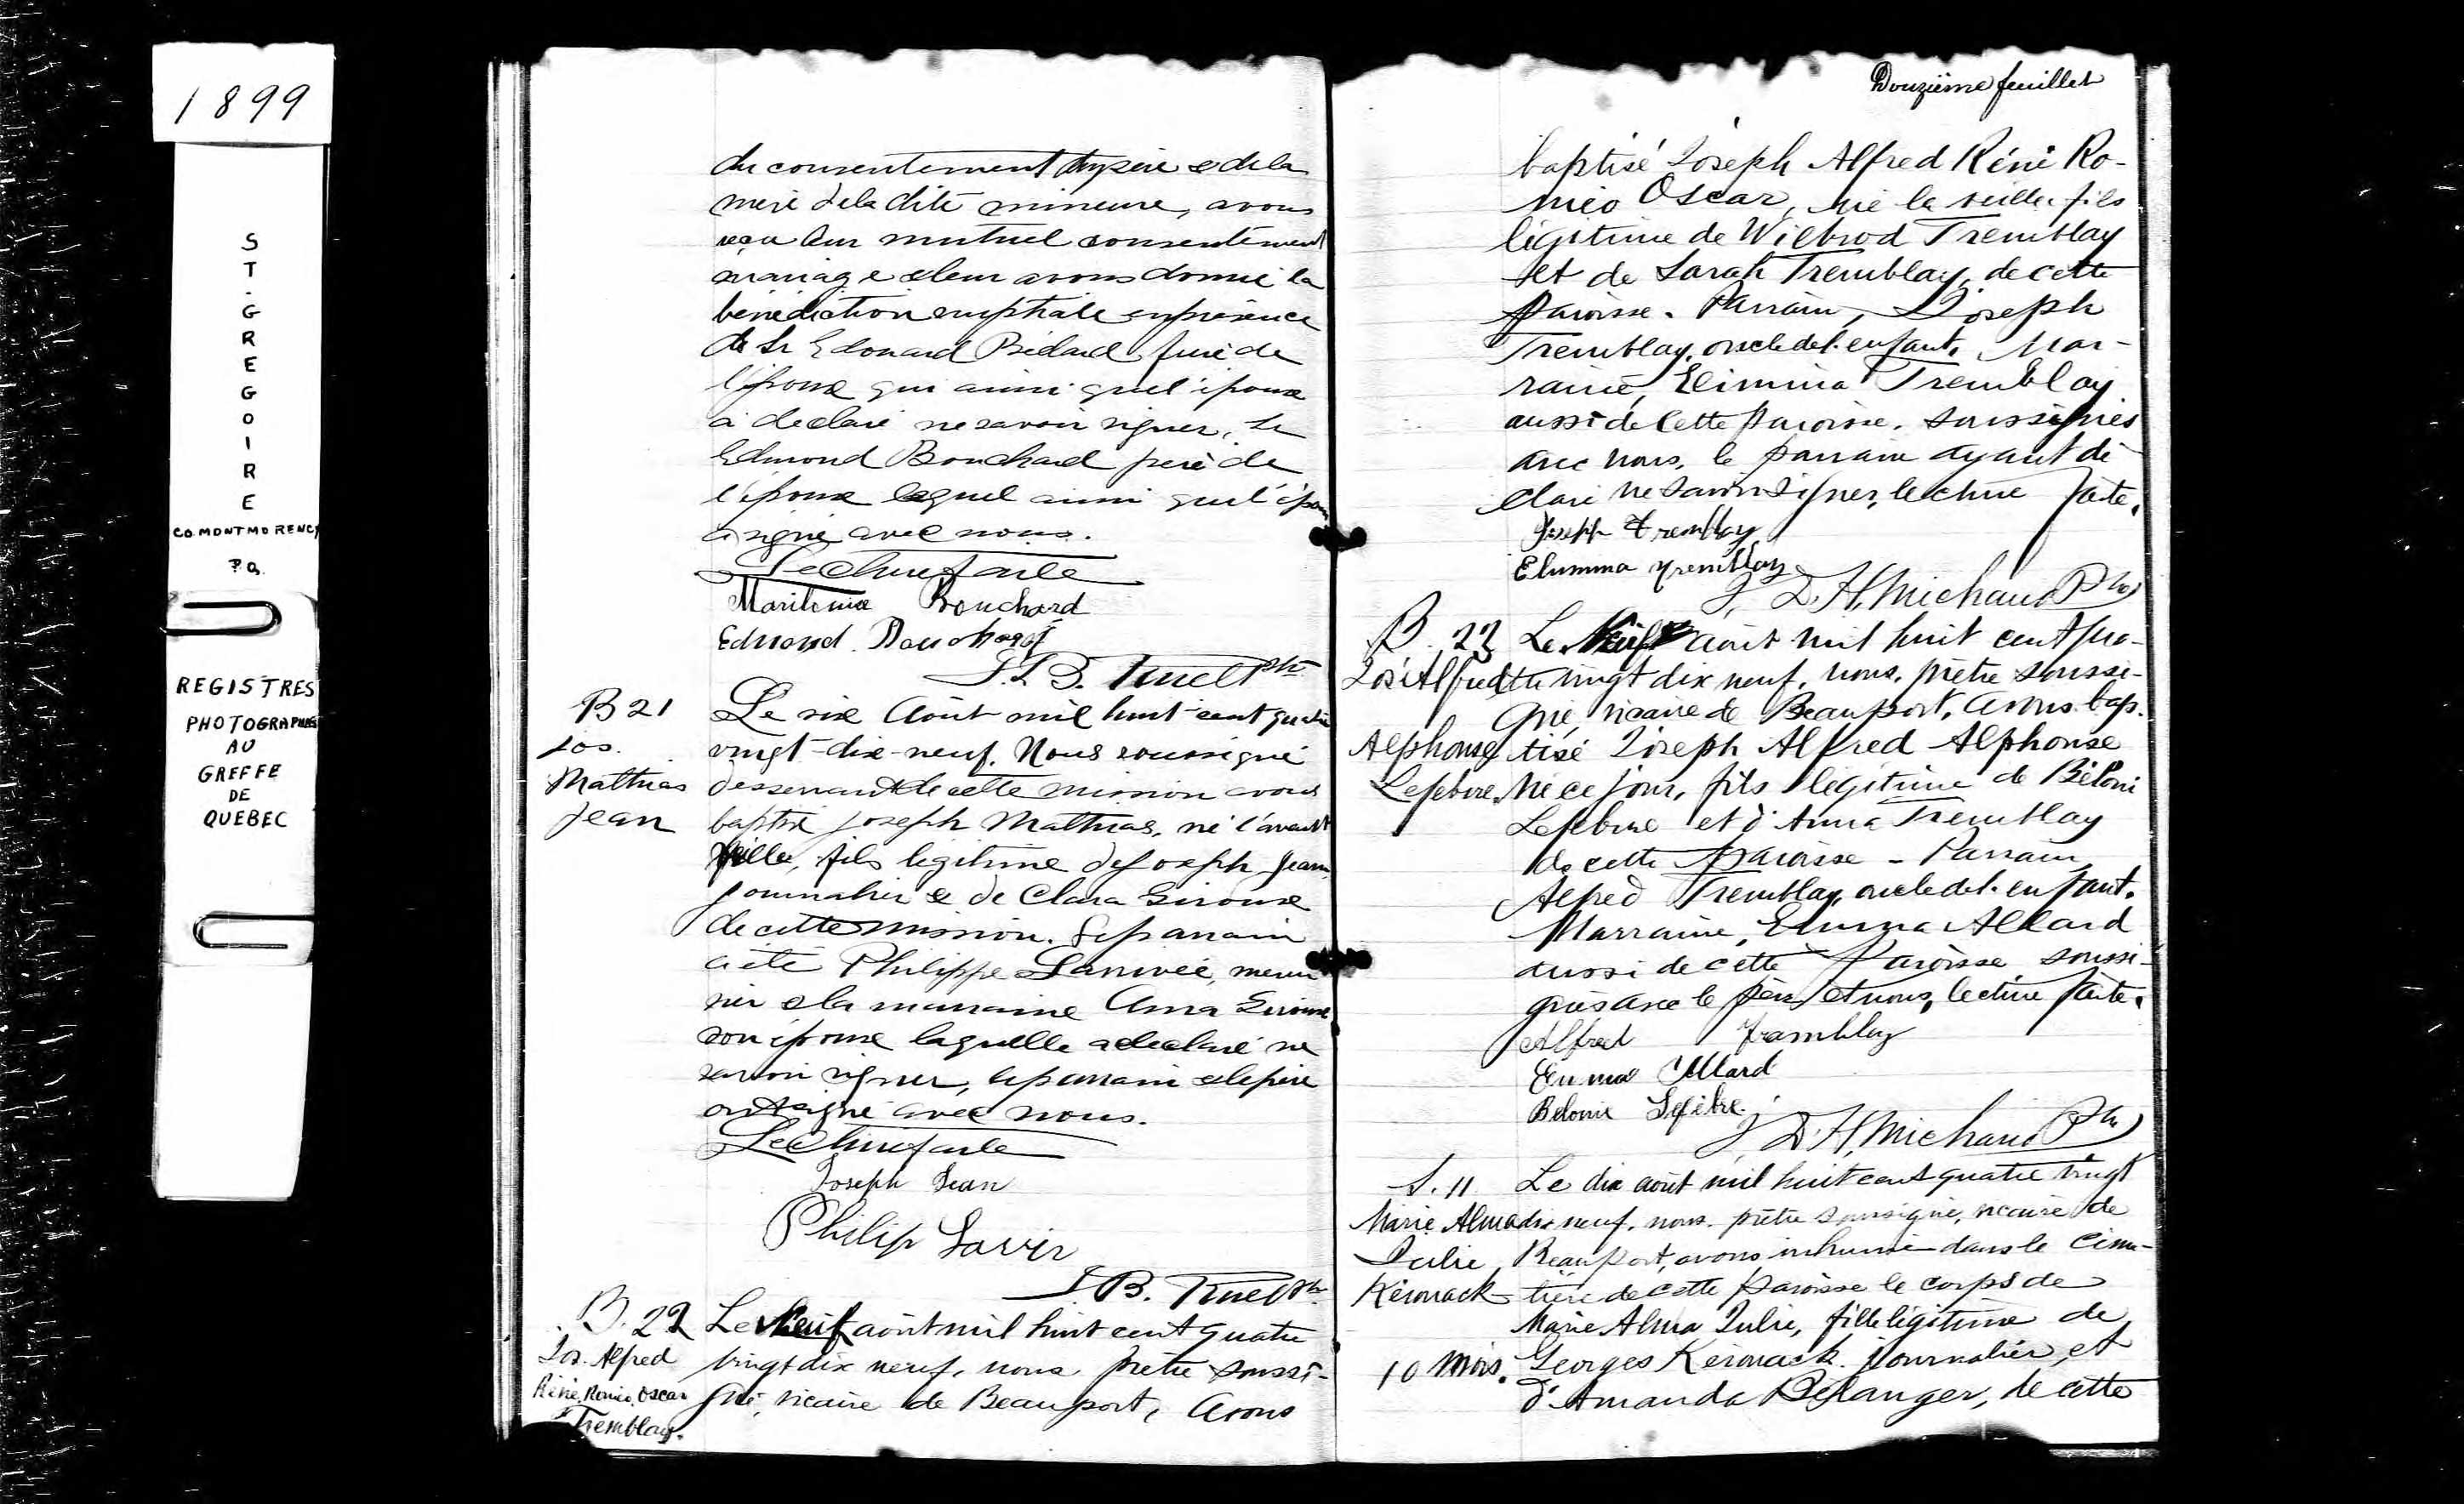 1899
ST. GREGOIRE
CO. MONTMORENCY
P.Q.
REGISTRES
PHOTOGRAPHIES
AU
GREFFE
DE
QUEBEC
du consentement du père & de la
mère de la dite mineure, avons
reçu leur mutuel consentement
mariage & leur avons donné la
bénédiction nuptiale en présence
de Sr Edouard Bédard père de
l'époux qui ainsi que l'époux
a déclaré ne savoir signer, Sr
Edmond Bouchard père de
l'épouse lequel ainsi que l'épouse
a signé avec nous.
Lecture faite
Bouchard
Edmond Bouchard
Ptre
B 21
Jos.
Mathias
Jean
Le six Août mil huit cent quatre
vingt-dix-neuf. Nous soussigné
desservant de cette mission avons
baptisé Joseph Mathias, né l'avant
veille, fils légitime de Joseph Jean
journalier & de Clara Giroux
de cette mission. Le parrain
a été Philippe Larrivée, meu-
nier & la marraine Anna Giroux
son épouse laquelle a déclaré ne
savoir signer, le parrain & le père
ont signé avec nous.
Lecture faite
Joseph Jean
Philip
Ptre
B. 22
Jos. Alfred
Réné, Roméo, Oscar
Tremblay.
Le Neuf août mil huit cent quatre
vingt dix neuf, nous prêtre soussi-
gné, vicaire de Beauport, avons
Douzième feuillet
baptisé Joseph Alfred Réné Ro-
méo Oscar, né la veille, fils
légitime de Wilbrod Tremblay
et de Sarah Tremblay, de cette
paroisse. Parrain, Joseph
Tremblay, oncle de l'enfant. Mar-
raine, Elimina Tremblay
aussi de cette paroisse. soussignés
avec nous, le parrain ayant dé-
claré ne savoir signer, lecture faite.
Joseph Tremblay
Elumina Tremblay
J. D. H. Michaud Ptre
B. 23
Jos. Alfred
Alphonse
Lefebvre.
Le Neuf août mil huit cent qua-
tre vingt dix neuf, nous, prêtre soussi-
gné, vicaire de Beauport, avons bap-
tisé Joseph Alfred Alphonse
né ce jour, fils légitime de Béloni
Lefebvre et d'Anna Tremblay
de cette paroisse - Parrain,
Alfred Tremblay, oncle de l'enfant.
Marraine, Emma Allard
aussi de cette paroisse soussi-
gnés avec le père et nous, lecture faite.
Alfred Tremblay
Emma Allard
Belonie Lefebre.
J. D. H. Michaud Ptre
S. 11
Marie Alma
Julie
Kérouack
10 mois.
Le dix août mil huit cent quatre vingt
dix neuf, nous prêtre soussigné, vicaire de
Beauport, avons inhumé dans le cime-
tière de cette paroisse le corps de
Marie Alma Julie, fille légitime de
Georges Kérouack journalier, et
d'Amanda Bélanger, de cette